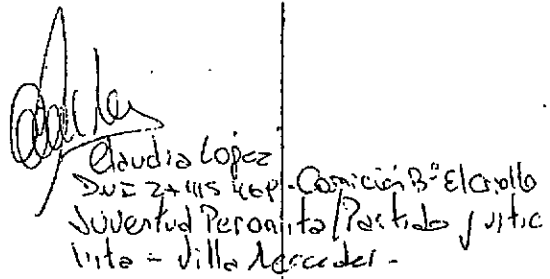 Claudia López
DNI - Comisión B° El criollo
Juventud Peronista/Partido Justic
lista - Villa Mercedes -